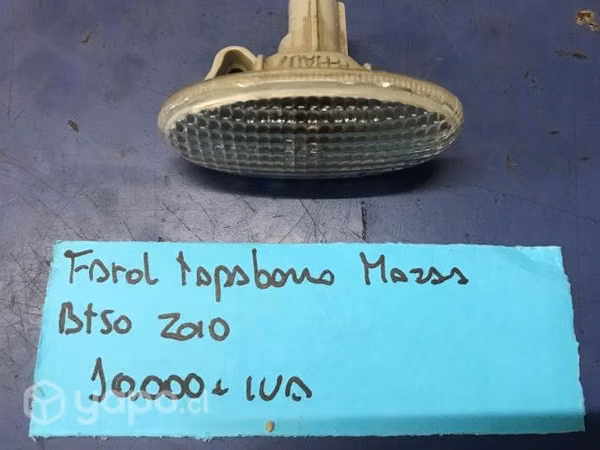 Farol tapabarro Mazda
Bt50 2010
10.000 + IVA
yapo.cl